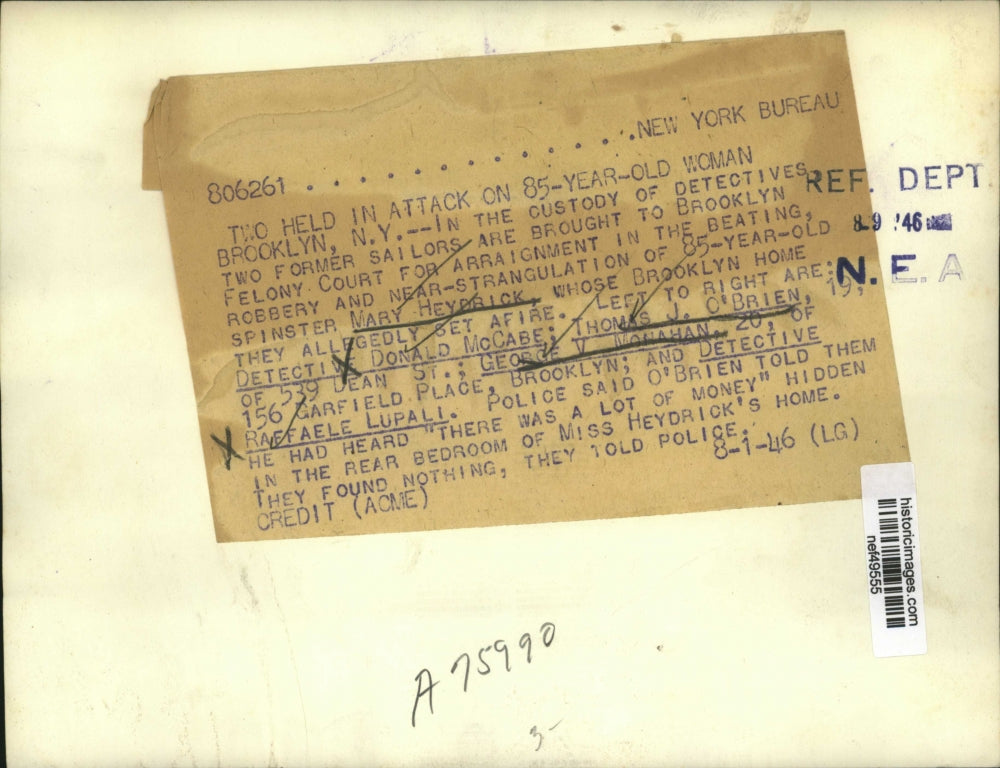 806261 . . . . . . . . . . . . . . .NEW YORK BUREAU
TWO HELD IN ATTACK ON 85-YEAR-OLD WOMAN
BROOKLYN, N.Y.--IN THE CUSTODY OF DETECTIVES,
TWO FORMER SAILORS ARE BROUGHT TO BROOKLYN
FELONY COURT FOR ARRAIGNMENT IN THE BEATING,
ROBBERY AND NEAR-STRANGULATION OF 85-YEAR-OLD
SPINSTER MARY HEYDRICK, WHOSE BROOKLYN HOME
THEY ALLEGEDLY SET AFIRE. LEFT TO RIGHT ARE:
DETECTIVE DONALD MCCABE; THOMAS J. O'BRIEN, 19,
OF 539 DEAN ST.; GEORGE V. MONAHAN, 20, OF
156 GARFIELD PLACE, BROOKLYN; AND DETECTIVE
RAFFAELE LUPALI. POLICE SAID O'BRIEN TOLD THEM
HE HAD HEARD "THERE WAS A LOT OF MONEY" HIDDEN
IN THE REAR BEDROOM OF MISS HEYDRICK'S HOME.
THEY FOUND NOTHING, THEY TOLD POLICE.
CREDIT (ACME) 8-1-46 (LG)
REF. DEPT
8 9 '46
N. E. A
historicimages.com
nef49555
A 75990
3-